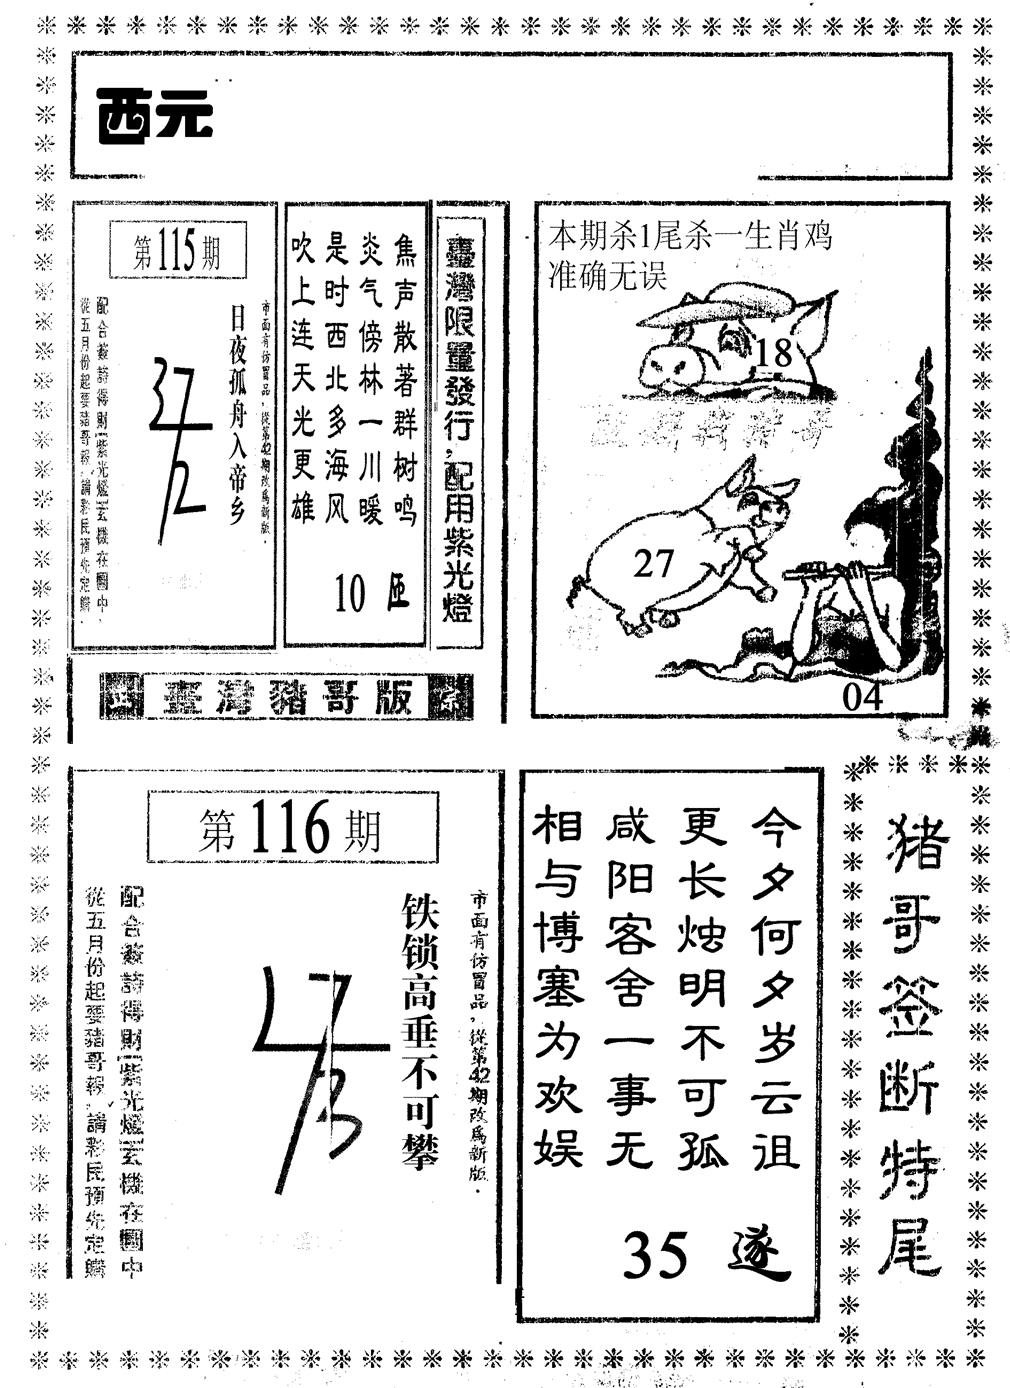 西元
第115期
市面有仿冒品，從第42期改為新版．
日夜孤舟入帝乡
配合簽詩得財紫光燈玄機在圖中．
從五月份起要豬哥報，請彩民預先定購．
焦声散著群树鸣
炎气傍林一川暖
是时西北多海风
吹上连天光更雄
10
臺灣限量發行，配用紫光燈
臺灣豬哥版
本期杀1尾杀一生肖鸡
准确无误
18
27
04
第116期
市面有仿冒品，從第42期改為新版．
铁锁高垂不可攀
配合簽詩得財紫光燈玄機在圖中
從五月份起要豬哥報，請彩民預先定購
今夕何夕岁云徂
更长烛明不可孤
咸阳客舍一事无
相与博塞为欢娱
35 遂
猪哥签断特尾